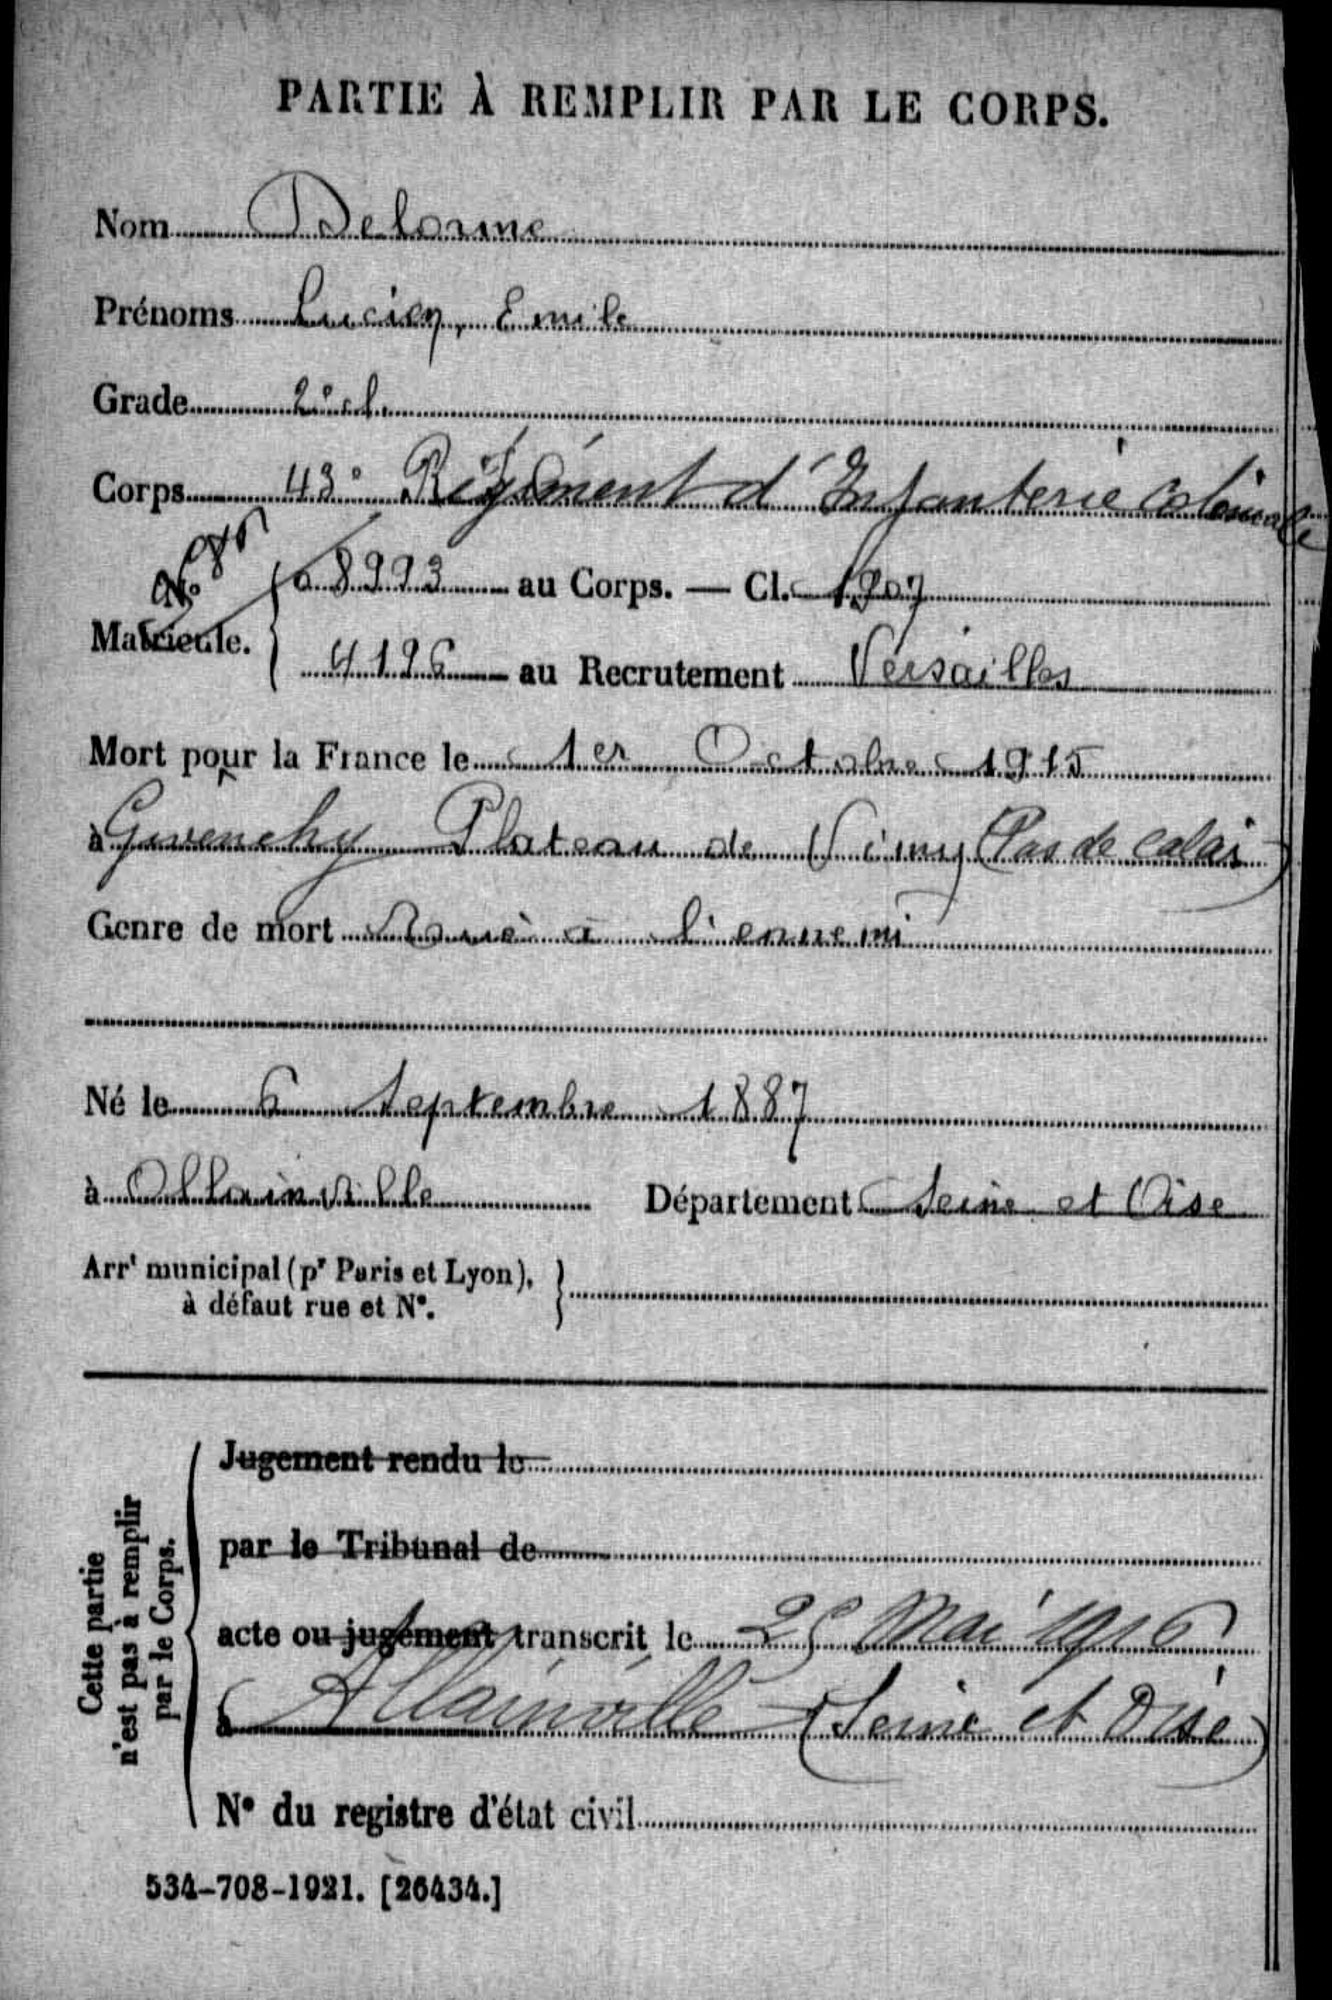 PARTIE À REMPLIR PAR LE CORPS.
Nom Delorme
Prénoms Lucien, Emile
Grade 2e cl.
Corps 43e Régiment d'Infanterie coloniale
No
08993 au Corps. — Cl. 1907
Matricule.
4196 au Recrutement Versailles
Mort pour la France le 1er Octobre 1915
à Givenchy Plateau de Vimy (Pas de Calais)
Genre de mort Tué à l'ennemi
Né le 6 Septembre 1887
à Allainville Département Seine et Oise
Arrt municipal (pr Paris et Lyon),
à défaut rue et No.
Cette partie
n'est pas à remplir
par le Corps.
Jugement rendu le
par le Tribunal de
acte ou jugement transcrit le 25 Mai 1916
à Allainville (Seine et Oise)
No du registre d'état civil
534-708-1921. [26434.]